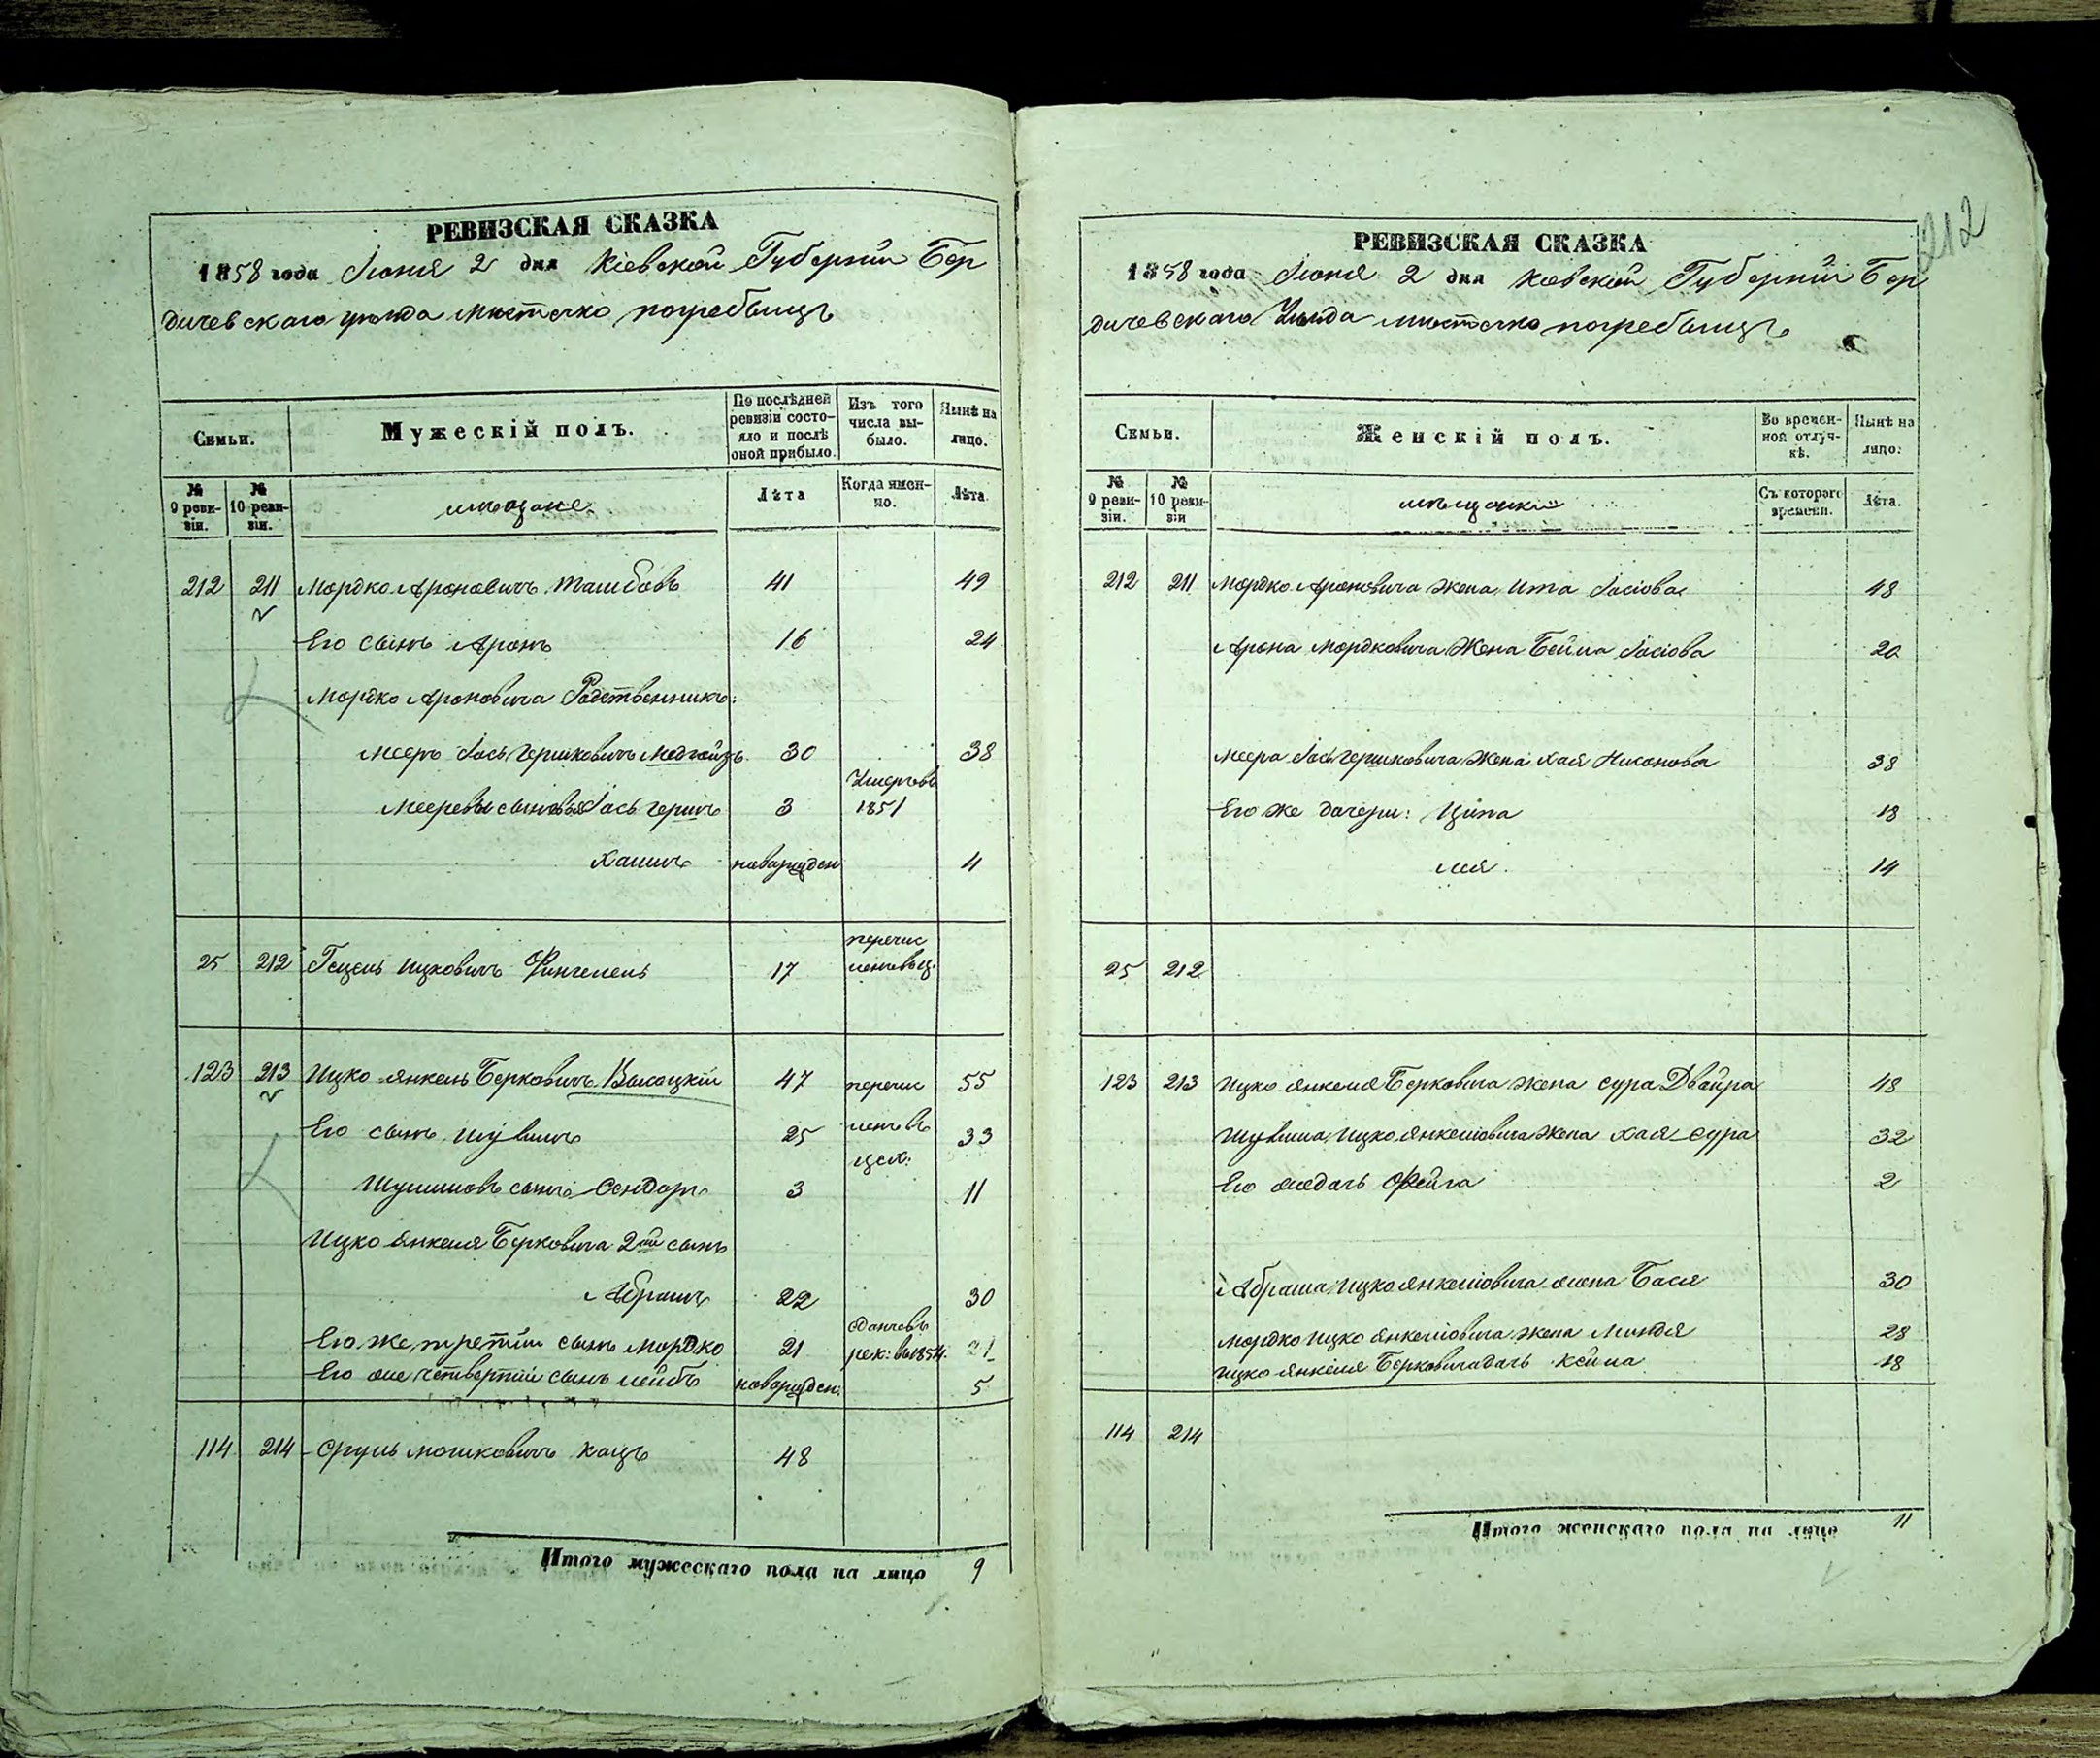 212
РЕВИЗСКАЯ СКАЗКА
1858 года Іюня 2 дня Кіевской Губерніи Бер
дичевскаго уезда местечко погребыщъ
Семьи.
Мужескій полъ.
По последней ревизіи состояло и послѣ оной прибыло.
Изъ того числа выбыло.
Нынѣ на лицо.
№ 9 ревизіи.
№ 10 ревизіи.
мещане
Лѣта
Когда именно.
Лѣта.
212 211 Мордко Ароновичъ 41 49
Его сынъ Аронъ 16 24
Мордко Ароновича Родственникъ:
Мееръ Іось Гершковичъ 30 38
Мееревы сыновья Іось Гершъ 3 Умеръ въ 1851
Хаимъ новорожден 4
25 212 Гецель Ицковичъ 17 перечис
123 213 Ицко Янкель Берковичъ Высоцкій 47 перечис 55
Его сынъ 25 ленъ въ 33
цех:
сынъ Сендоръ 3 11
Ицко Янкеля Берковича 2ой сынъ
Абрамъ 22 30
Его же третій сынъ Мордко 21 Отданъ въ рек: въ 1854. 21
Его же четвертый сынъ Лейбъ новорожден. 5
114 214 Сруль Мошковичъ Кацъ 48
Итого мужескаго пола на лицо 9
РЕВИЗСКАЯ СКАЗКА
1858 года Іюня 2 дня Киевской Губерніи Бер
дичевскаго Уезда местечко погребыщъ
Семьи.
Женскій полъ.
Во временной отлучкѣ.
Нынѣ на лицо.
№ 9 ревизіи.
№ 10 ревизіи
мещанки
Съ котораго времени.
Лѣта.
212 211 Мордко Ароновича Жена Ита Іосіова 48
Арона Мордковича Жена Бейла Іосіова 20
Меера Іось Гершковича Жена Хая 38
Его же дочери: Ципа 18
Лея 14
25 212
123 213 Ицко Янкеля Берковича Жена Сура Двойра 48
Ицко Янкеліовича Жена Хая Сура 32
Его же дочь Фейга 2
Абрама Ицко Янкеліовича жена Бася 30
Мордко Ицко Янкеліовича Жена Миндя 28
Ицко Янкеля Берковича дочь Кейла 18
114 214
Итого женскаго пола на лицо 11